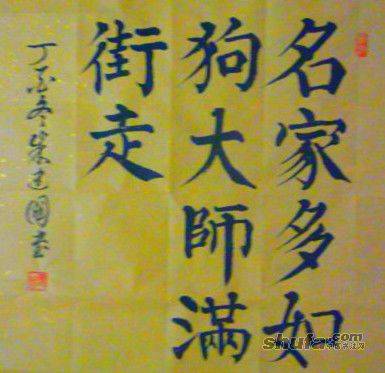 名家多如
狗大師滿
街走
丁亥冬朱建國書
shufa.com